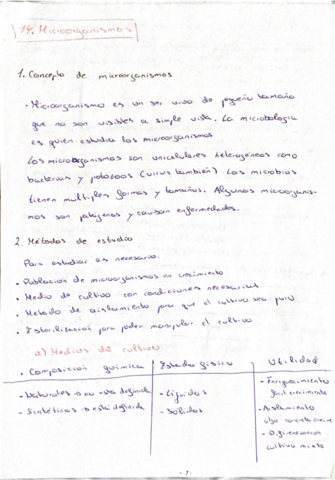 14. Microorganismos
1. Concepto de microorganismos
· Microorganismo es un ser vivo de pequeño tamaño
que no son visibles a simple vista. La microbiología
es quien estudia los microorganismos
Los microorganismos son unicelulares heterogéneos como
bacterias y protozoos (virus también). Los microbios
tienen multiples formas y tamaños. Algunos microorganis-
mos son patógenos y causan enfermedades.
2. Métodos de estudio
Para estudiar es necesario:
· Población de microorganismos en crecimiento
· Medio de cultivo con condiciones necesarias
· Método de aislamiento para que el cultivo sea puro
· Esterilización para poder manipular el cultivo
a) Medios de cultivo
· Composición química | Estado físico | Utilidad
- Naturales → no está definida - Líquidos - Enriquecimiento
crecimiento
- Sintéticos → está definida - Sólidos - Aislamiento
- Diferenciación
cultivo mixto
- 1 -